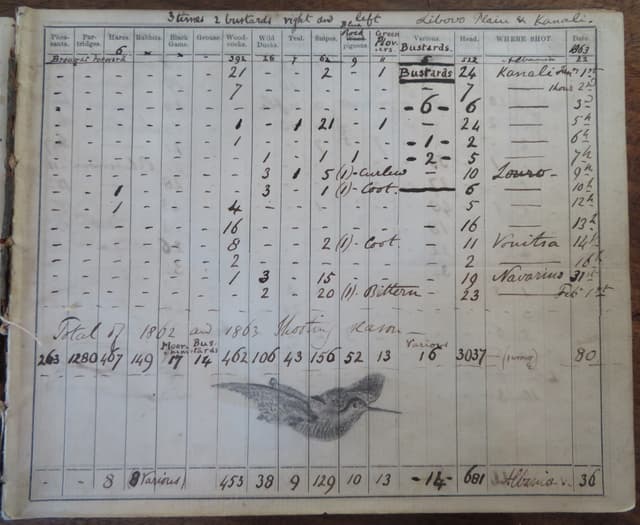 3 times 2 bustards right and left Libovo Plain & Kanali.
Pheasants. Partridges. Hares. Rabbits. Black Game. Grouse. Woodcocks. Wild Ducks. Teal. Snipes. Blue Rock pigeons Green Plovers Various. Bustards. Head. WHERE SHOT. 1863 Date.
Brought forward 6 - - 392 26 7 62 9 6 512 Albania 22
- - - - - - 21 - - 2 - 1 Bustards 24 Kanali Jan 1st
- - - - - - 7 - - - - - - 7 — 1 hour 2nd
- - - - - - - - - - - - -6- 6 — 3rd
- - - - - - 1 - 1 21 - 1 - 24 — 5th
- - - - - - 1 - - - - - -1- 2 — 6th
- - - - - - - 1 - 1 1 - -2- 5 — 7th
- - - - - - - 3 1 5 (1)-Curlew - 10 Louro - 9th
- - 1 - - - - 3 - 1 (1)-Coot. — 6 — 10th
- - 1 - - - 4 - - - - - - 5 — 12th
- - - - - - 16 - - - - - - 16 — 13th
- - - - - - 8 - - 2 (1)-Coot. - 11 Vonitsa 14th
- - - - - - 2 - - - - - - 2 — 16th
- - - - - - 1 3 - 15 - - - 19 Navarino 31st
- - - - - - - 2 - 20 (1)-Bittern - 23 — Feb 1st
Total of 1862 and 1863 Shooting Season
263 1280 467 149 Moor hens 17 Bustards 14 462 106 43 156 52 13 Various 16 3037 — 80
- - 8 8 Various, 453 38 9 129 10 13 -14- 681 Albania 36